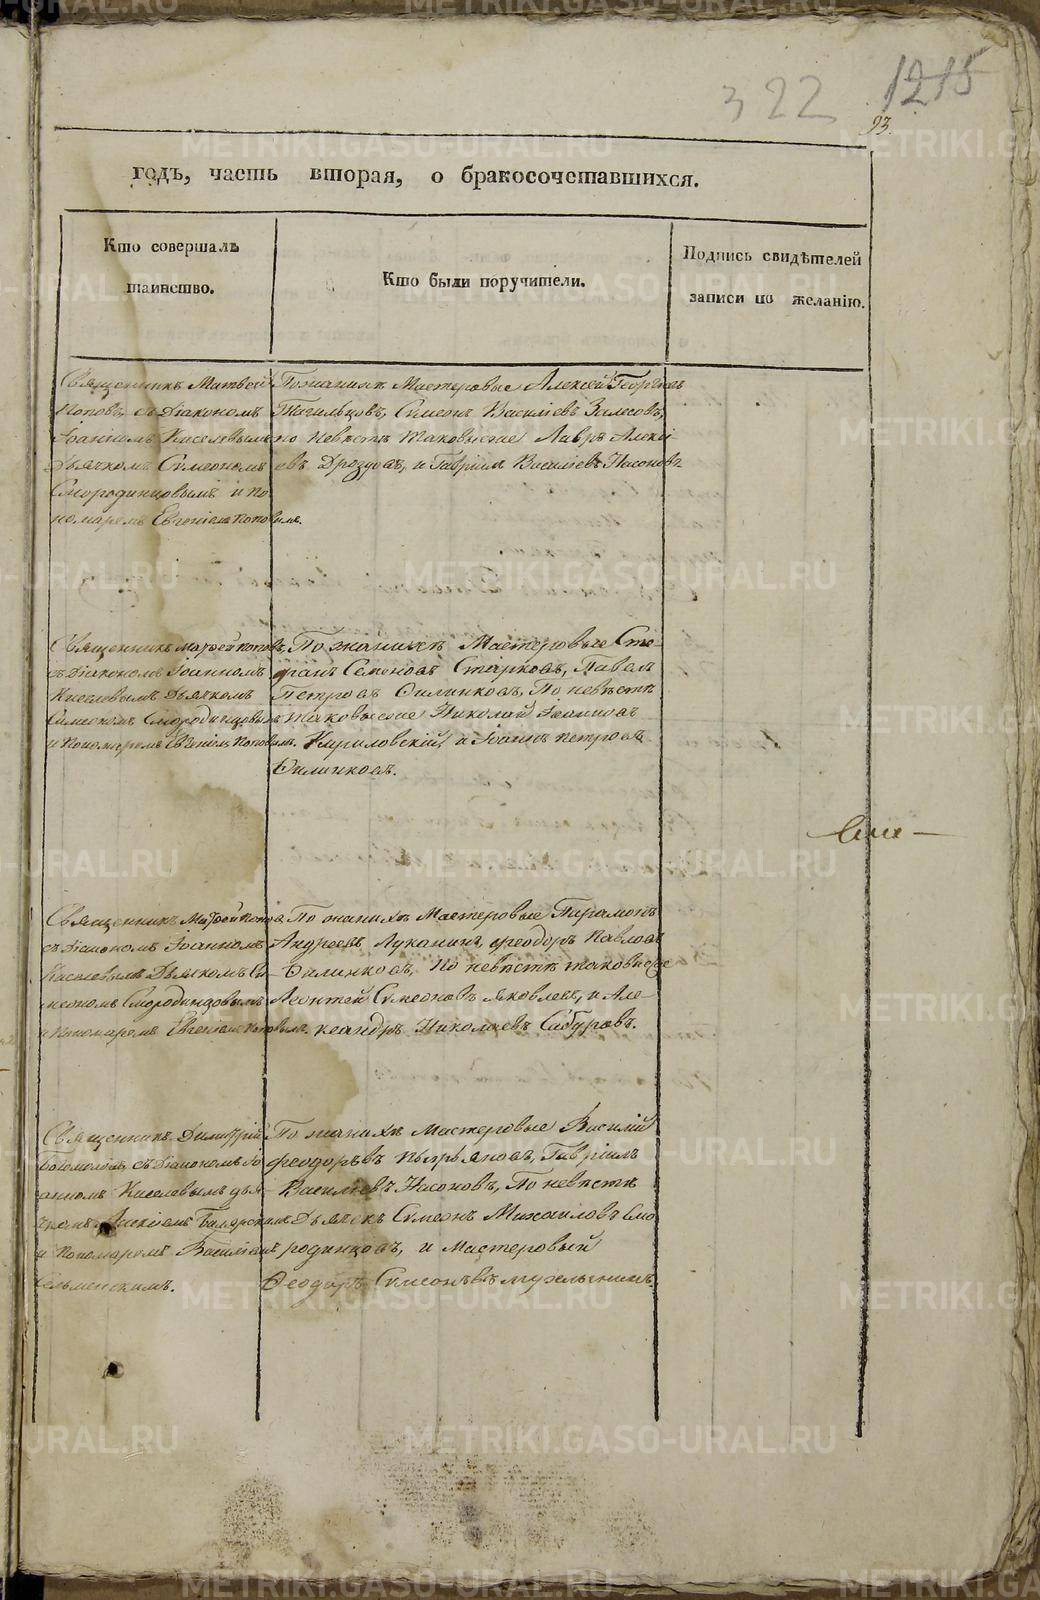 322
1215
93.
годъ, часть вторая, о бракосочетавшихся.
Кто совершалъ
таинство.
Кто были поручители.
Подпись свидѣтелей
записи по желанію.
Священникъ Матвей
Поповъ, съ Діакономъ
Іоанномъ Киселевымъ
Дьячкомъ Сѵмеономъ
Смородинцовымъ и по-
номаремъ Евгеніемъ Поповымъ.
По женихѣ Мастеровые Алексей Георгіевъ
Тагильцовъ, Сѵмеонъ Василіевъ Залесовъ,
по невѣстѣ таковыеже Лавръ Алексі-
евъ Дроздовъ, и Гавріилъ Василіевъ Насоновъ
Священникъ Матфей Поповъ,
съ Діакономъ Іоанномъ
Киселевымъ Дьячкомъ
Сѵмеономъ Смородинцовымъ
и Пономаремъ Евгеніемъ Поповымъ.
По женихѣ Мастеровые Сте-
фанъ Семеновъ Старковъ, Павелъ
Петровъ Филинковъ, По невѣстѣ
таковыеже Николай Іоанновъ
Кириловскій, и Іоаннъ Петровъ
Филинковъ.
Священникъ Матфей Поповъ
съ Діакономъ Іоанномъ
Киселевымъ Дьячкомъ Сѵ-
меономъ Смородинцовымъ
и Пономаремъ Евгеніемъ Поповымъ.
По женихѣ Мастеровые Парамонъ
Андреевъ Луканинъ, Феодоръ Павловъ
Филинковъ, По невѣстѣ таковыеже
Леонтей Сѵмеоновъ Яковлевъ, и Але-
ксандръ Николаевъ Сабуровъ.
Священникъ Димитрій
Богомоловъ, съ Діакономъ Іо-
анномъ Киселевымъ дья-
чкомъ Алексіемъ
и Пономаремъ Василіемъ
По женихѣ Мастеровые Василій
Феодоровъ Пырьяновъ, Гавріилъ
Василіевъ Насоновъ, По невѣстѣ
Дьячекъ Сѵмеонъ Михаиловъ Смо-
родинцовъ, и Мастеровый
Феодоръ Сѵмеоновъ